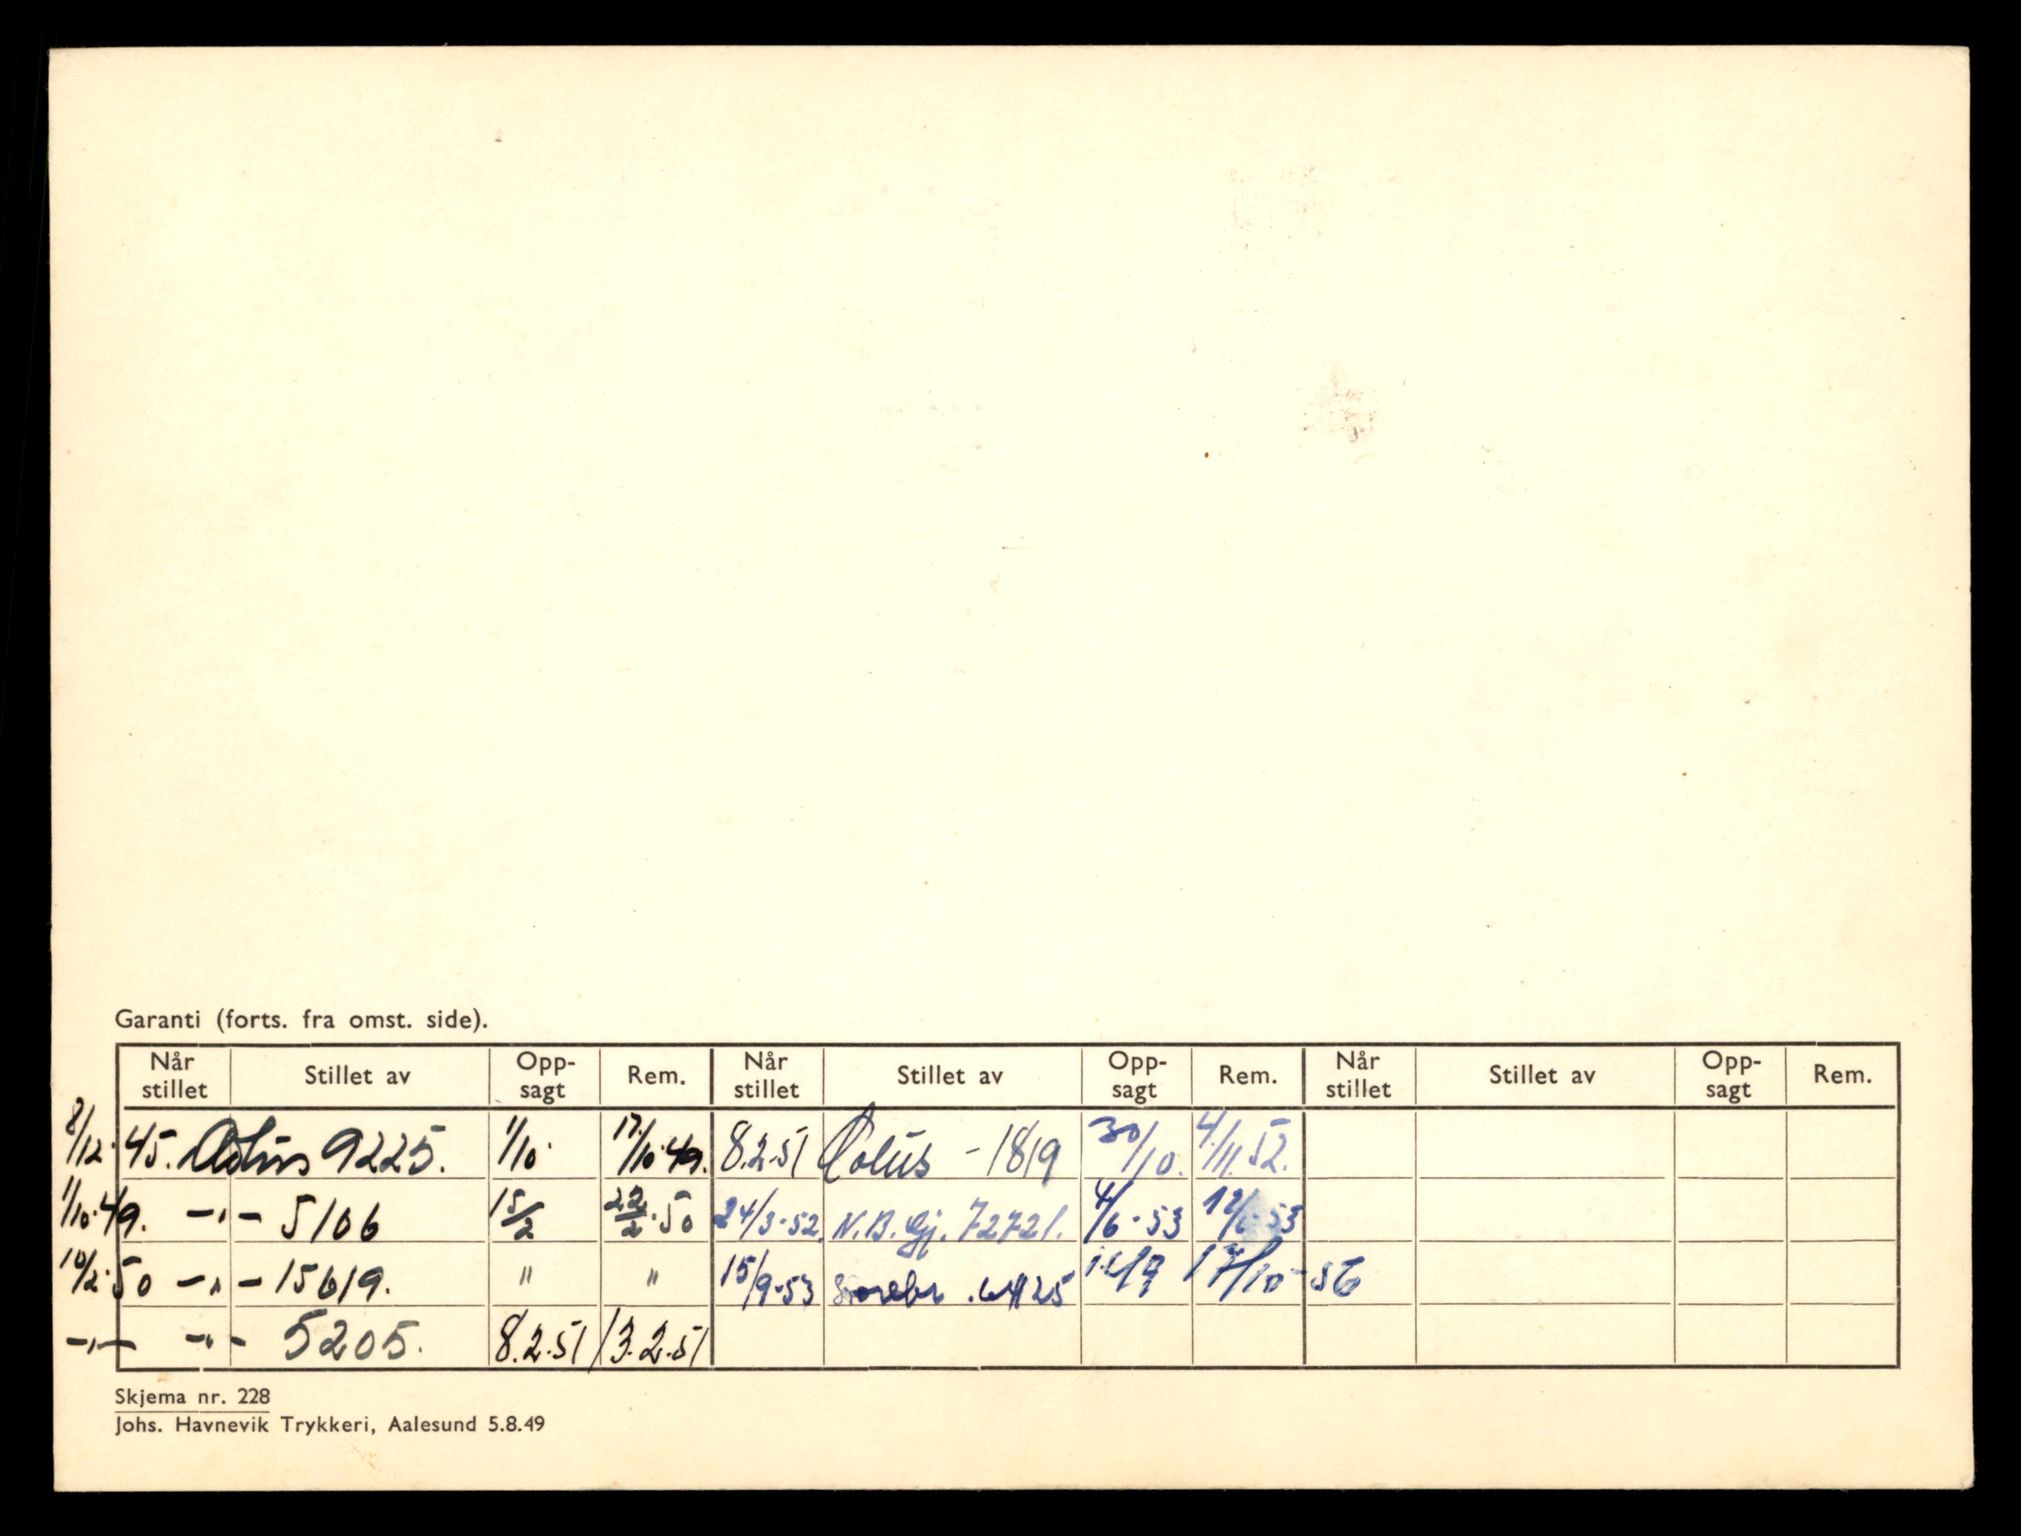 Garanti (forts. fra omst. side).
Når stillet Stillet av Opp-sagt Rem. Når stillet Stillet av Opp-sagt Rem. Når stillet Stillet av Opp-sagt Rem.
8/12.45. Æolus 9225. 1/10. 17/10.49. 8.2.51 Æolus - 1819 30/10. 4/11.52.
1/10.49. -"- 5106 15/2 22/2.50 24/3-52. N.B.Gj. 72721. 4/6-53 12/6-53
10/2.50 -"- 15619. " " 15/9-53 Storebr. 17/10-56
-"- -"- 5205. 8.2.51 13.2.51
Skjema nr. 228
Johs. Havnevik Trykkeri, Aalesund 5.8.49